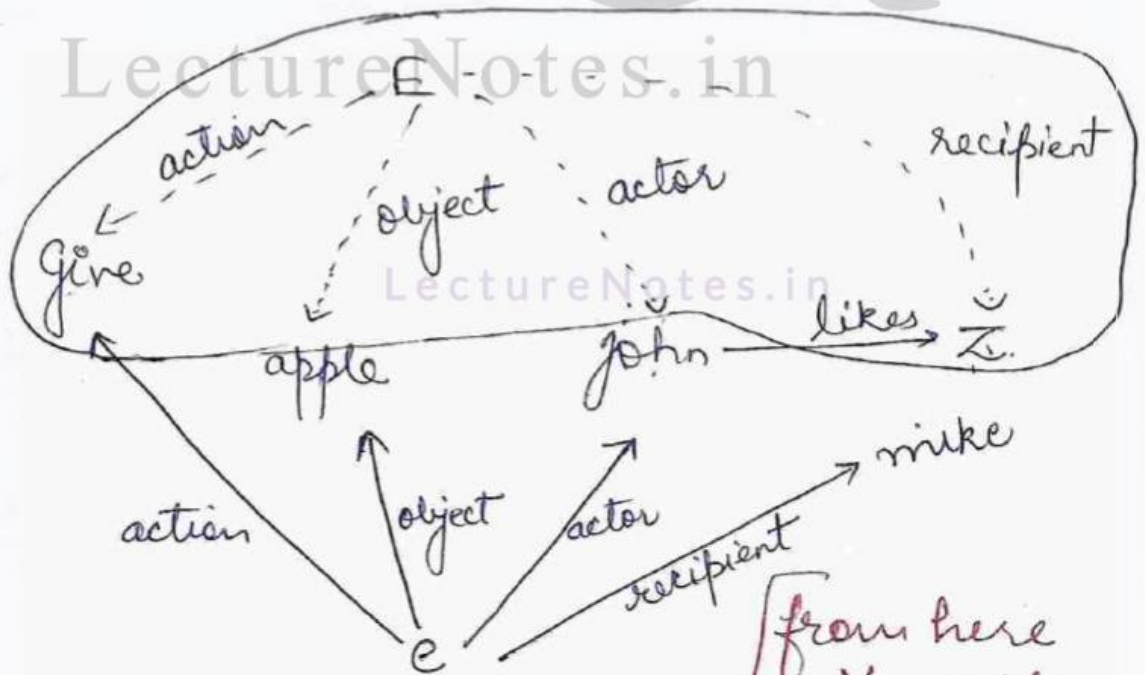 LectureNotes.in
E
action
object
actor
recipient
Give
LectureNotes.in
apple
john
likes
Z.
mike
action
object
actor
recipient
e
from here